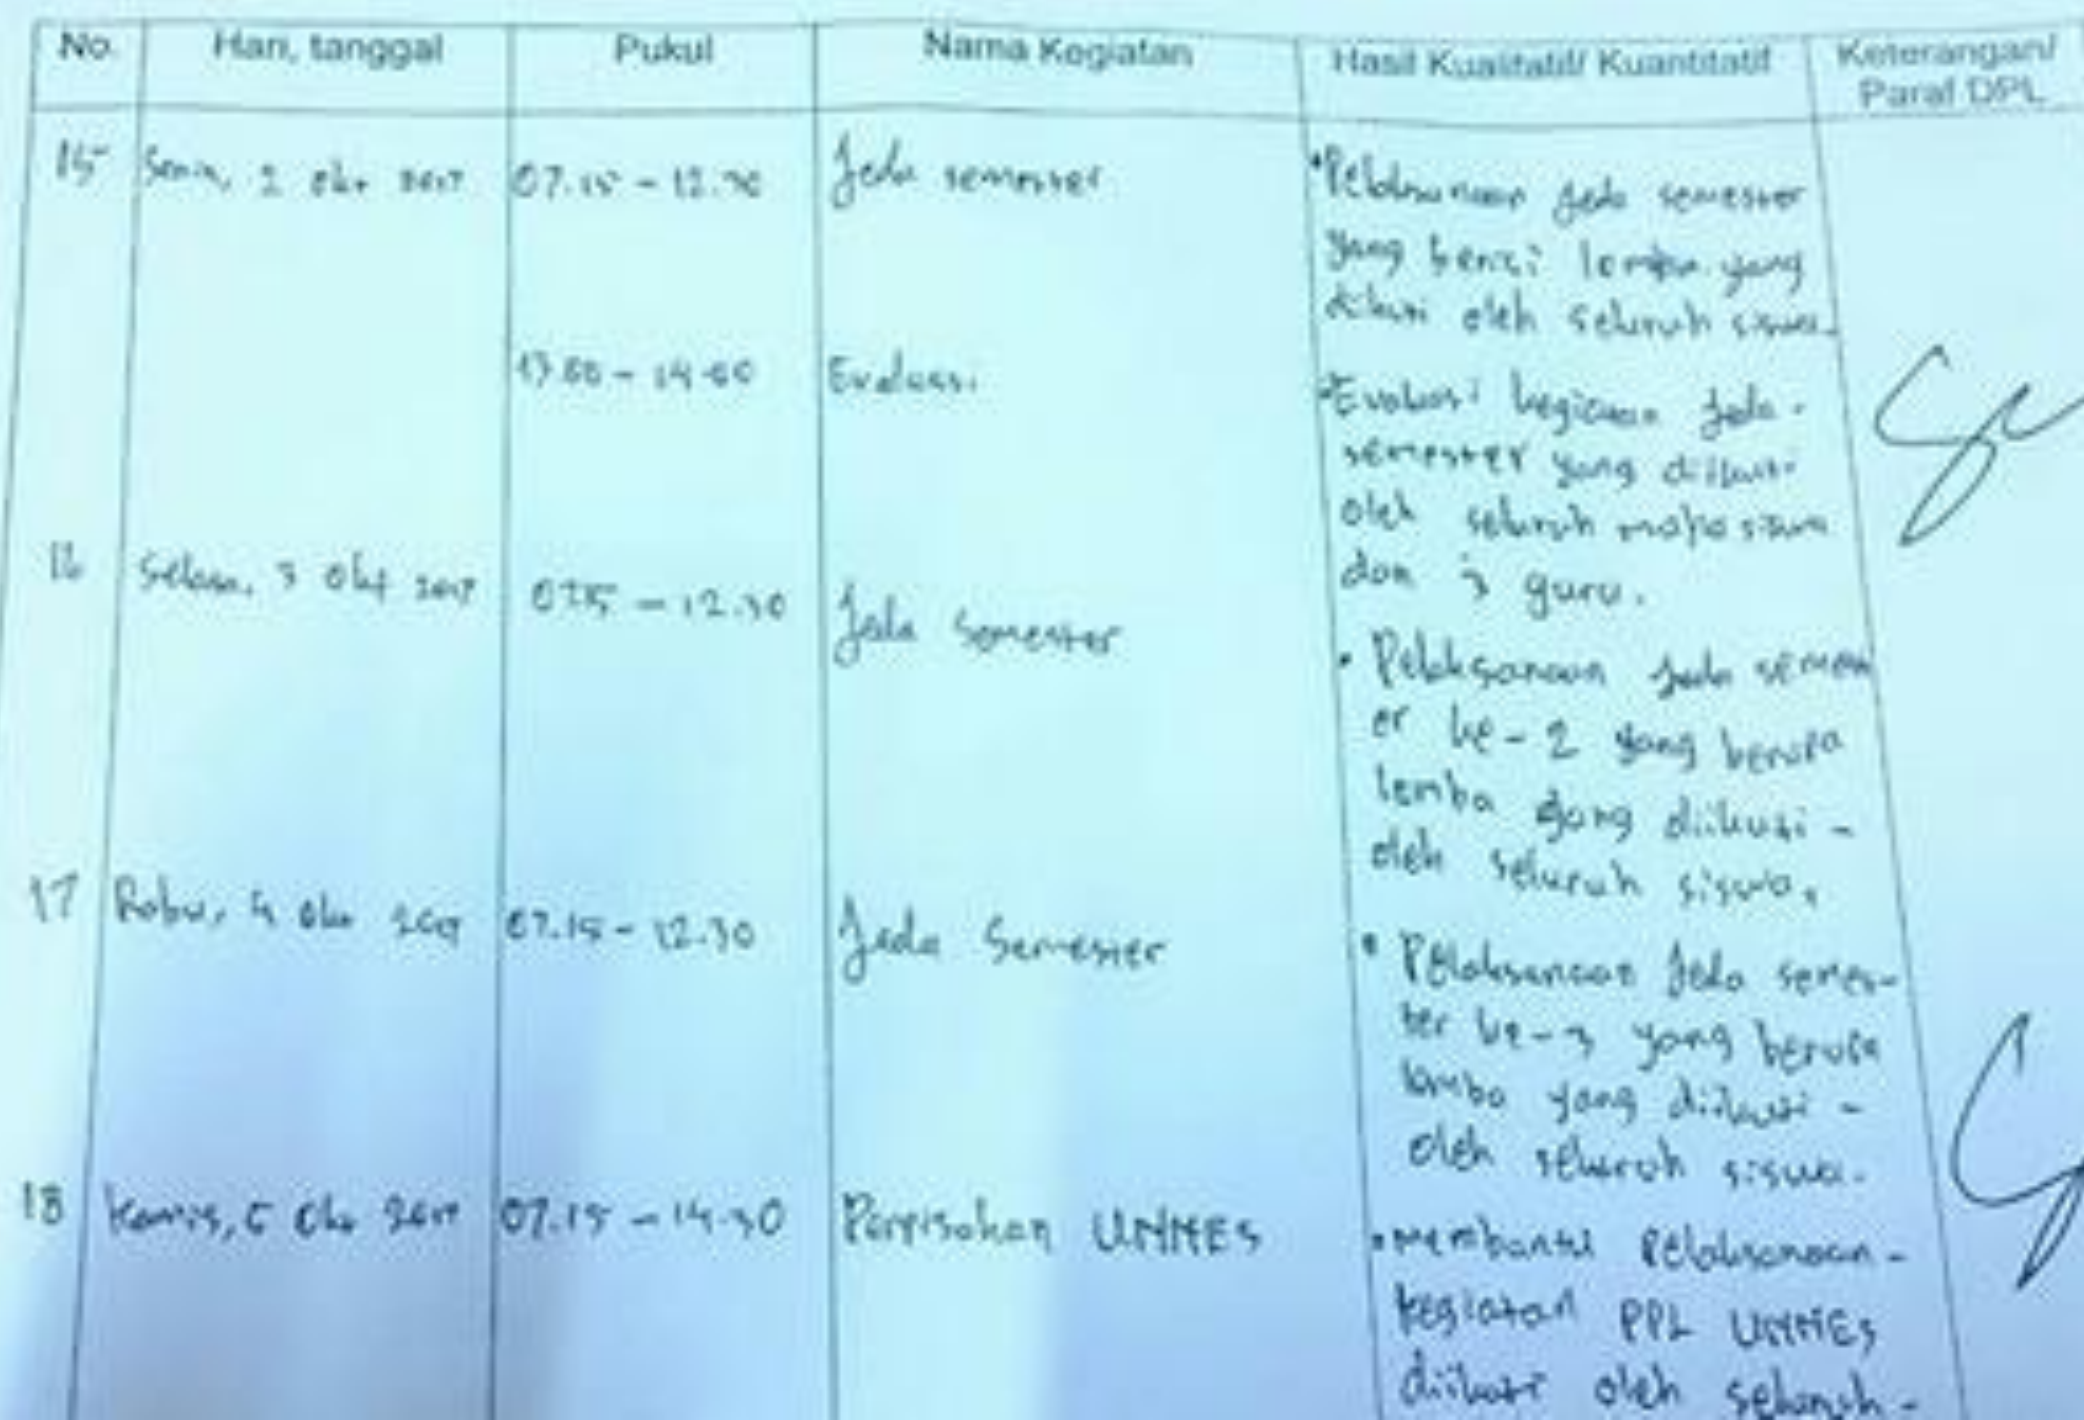 No. Hari, tanggal Pukul Nama Kegiatan Hasil Kualitatif/ Kuantitatif Keterangan/
Paraf DPL
15 Senin, 2 Okt 2017 07.15 - 12.30 Jeda semester • Pelaksanaan jeda semester
yang berisi lomba yang
diikuti oleh seluruh siswa.
13.00 - 14.00 Evaluasi • Evaluasi kegiatan jeda -
semester yang diikuti
oleh seluruh mahasiswa
dan 3 guru.
16 Selasa, 3 Okt 2017 07.15 - 12.30 Jeda Semester
• Pelaksanaan jeda semest
er ke-2 yang berupa
lomba yang diikuti -
oleh seluruh siswa.
17 Rabu, 4 Okt 2017 07.15 - 12.30 Jeda Semester • Pelaksanaan jeda semes-
ter ke-3 yang berupa
lomba yang diikuti -
oleh seluruh siswa.
18 Kamis, 5 Okt 2017 07.15 - 14.30 Perpisahan UNNES • Membantu pelaksanaan -
kegiatan PPL UNNES
diikuti oleh seluruh -